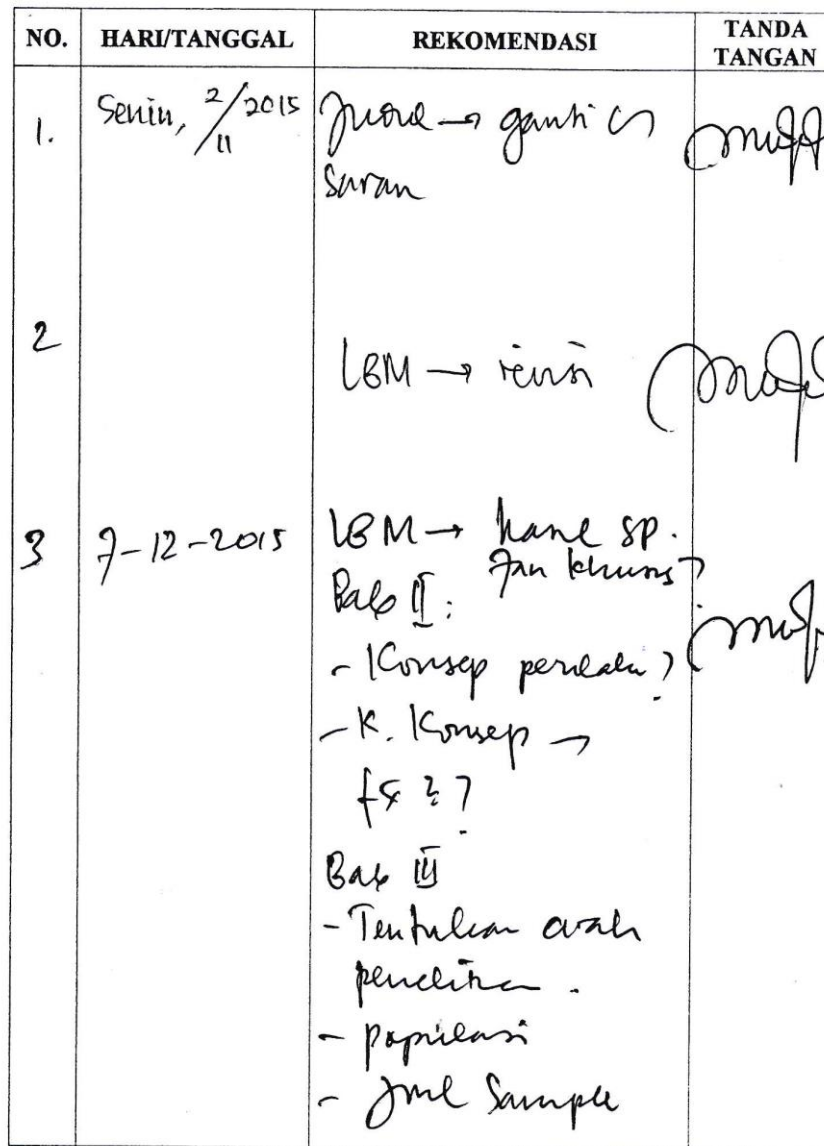 NO. HARI/TANGGAL REKOMENDASI TANDA TANGAN
1. Senin, 2/11 2015 → ganti
saran
2 LBM → revisi
3 7-12-2015 LBM → sp.
khusus?
Bab II:
- Konsep perilaku?
- K. Konsep →
??
Bab III
- Tentukan arah
penelitian.
- populasi
- Jml Sample